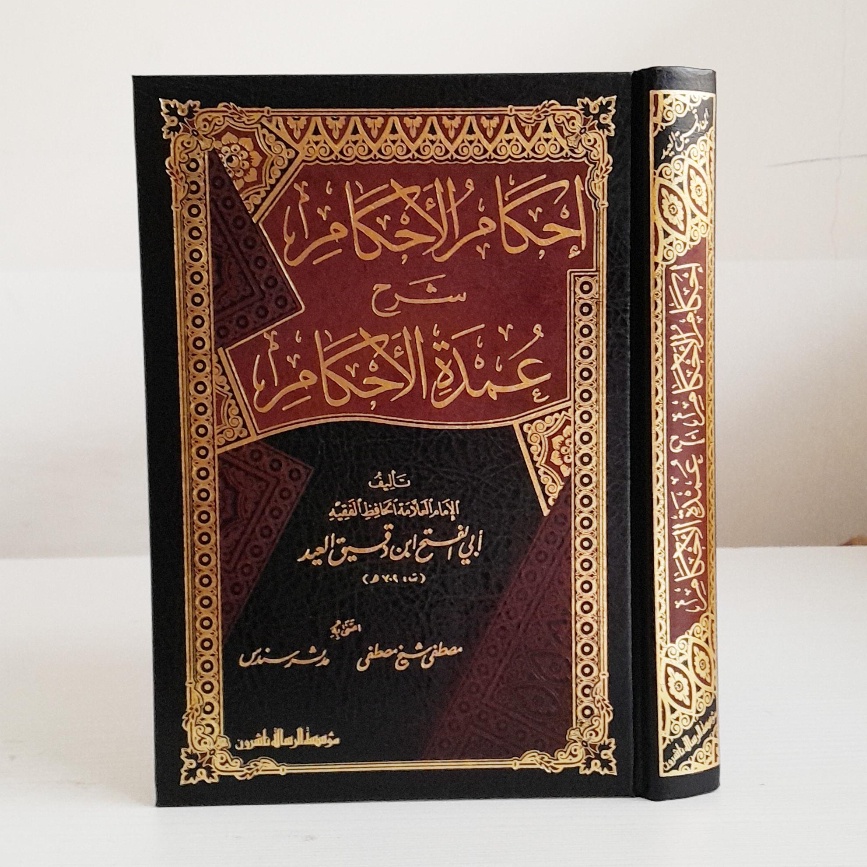 إِحْكَامُ الأَحْكَامِ
شَرْح
عُمْدَةِ الأَحْكَامِ
تَأليفُ
الإمَام العَلّامَة الحَافِظ الفَقِيْه
أبي الفتح ابن دقيق العيد
(ت ٧٠٢ هـ)
اعتَنى بِهِ
مصطفى شيخ مصطفى
مدثر سندس
مؤسسة الرسالة ناشرون
ابن دقيق العيد
إحكام الأحكام شرح عمدة الأحكام
مؤسسة الرسالة ناشرون